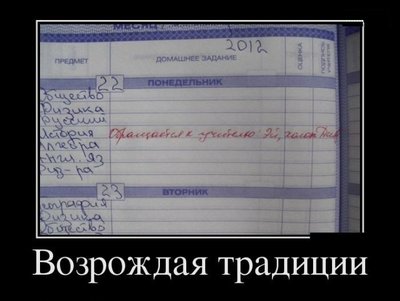 МЕСЯЦ
2012
ПРЕДМЕТ ДОМАШНЕЕ ЗАДАНИЕ ОЦЕНКА
22 ПОНЕДЕЛЬНИК
Общество
Физика
Русский
История Обращается к учителю "Эй, холоп
Алгебра
Англ. яз
Физ-ра
23 ВТОРНИК
География
Физика
Общество
Возрождая традиции